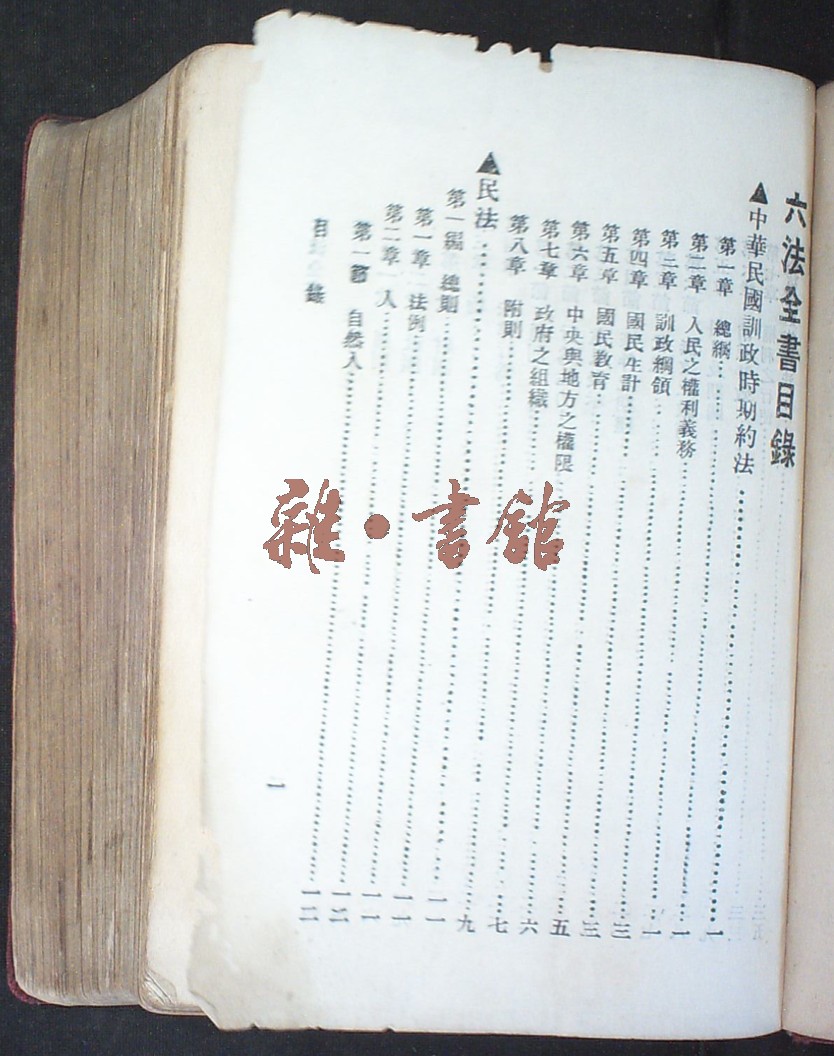 六法全書目錄
▲中華民國訓政時期約法……一
第一章　總綱……一
第二章　人民之權利義務……一
第三章　訓政綱領……三
第四章　國民生計……三
第五章　國民教育……五
第六章　中央與地方之權限……六
第七章　政府之組織……七
第八章　附則……九
▲民法……一一
第一編　總則……一一
第一章　法例……一一
第二章　人……一二
第一節　自然人……一二
目　錄　一
雜·書館